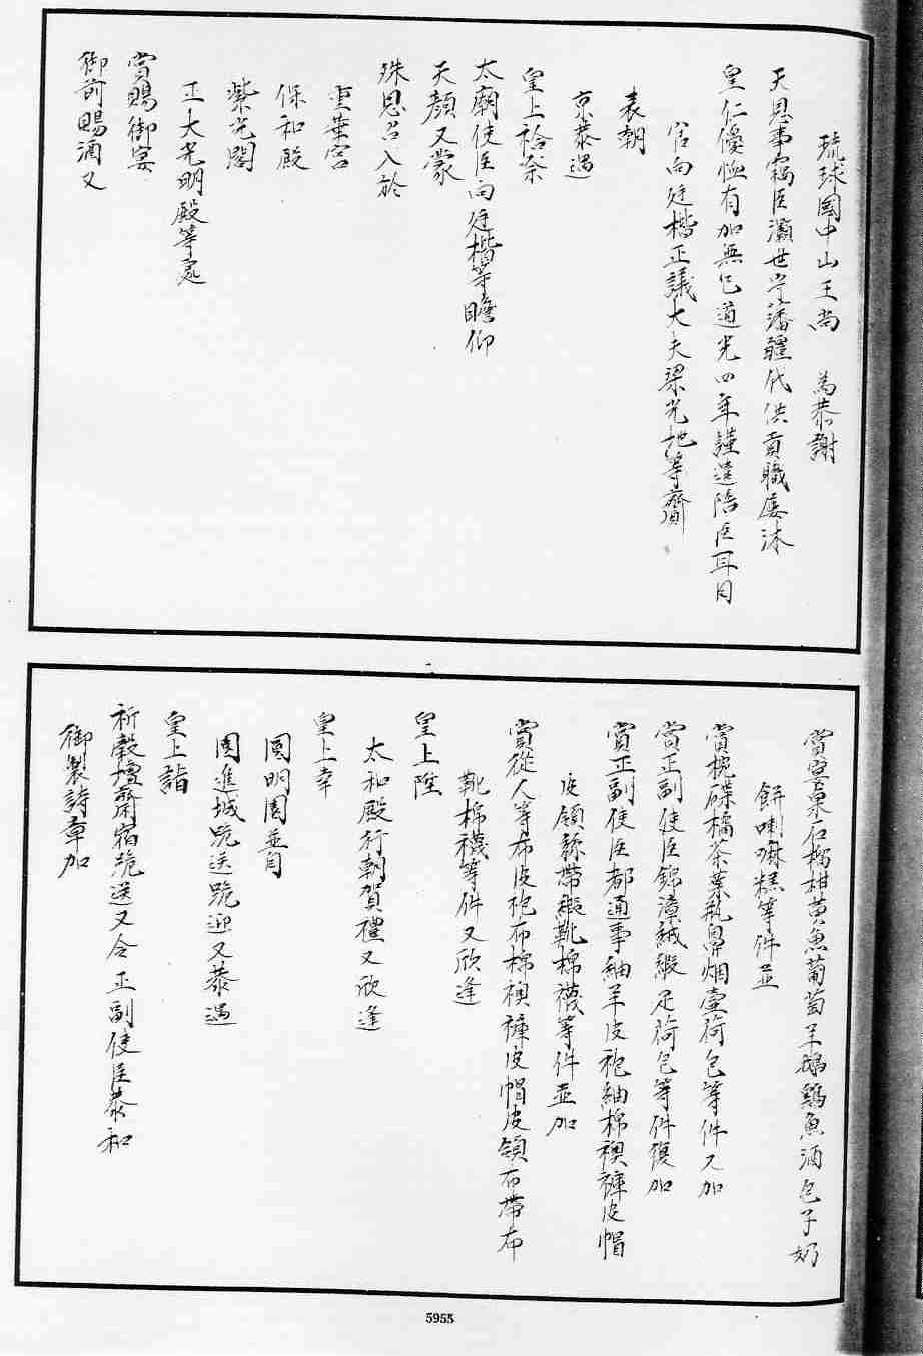 琉球國中山王尚　為恭謝
天恩事竊臣灝世守藩疆代供貢職屢沐
皇仁優恤有加無已道光四年謹遣陪臣耳目
官向廷楷正議大夫梁光地等齎
表朝
京恭遇
皇上祫祭
太廟使臣向廷楷等瞻仰
天顏又蒙
殊恩召入於
重華宮
保和殿
紫光閣
正大光明殿等處
賞賜御宴
御前賜酒又
賞宴菓石榴柑黃魚葡萄羊鵝鷄魚酒包子奶
餅喇嘛糕等件並
賞梡碟橘茶葉瓶鼻烟壺荷包等件又加
賞正副使臣錦漳絨緞疋荷包等件復加
賞正副使臣都通事紬羊皮袍紬棉襖褲皮帽
皮領縧帶緞靴棉襪等件並加
賞從人等布皮袍布棉襖褲皮帽皮領布帶布
靴棉襪等件又欣逢
皇上陞
太和殿行朝賀禮又欣逢
皇上幸
圓明園並自
園進城跪送跪迎又恭遇
皇上詣
祈穀壇齋宿跪送又令正副使臣恭和
御製詩章加
5955